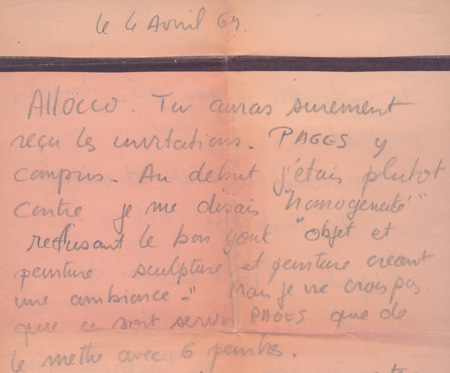 le 4 Avril 69.
Allocco. Tu auras surement
reçu les invitations. PAGES y
compris. Au debut j'étais plutot
contre je me disais "homogeneité"
refusant le bon gout "objet et
peinture sculpture et peinture creant
une ambiance." Mais je ne crois pas
que ce soit servir PAGES que de
le mettre avec 6 peintres.